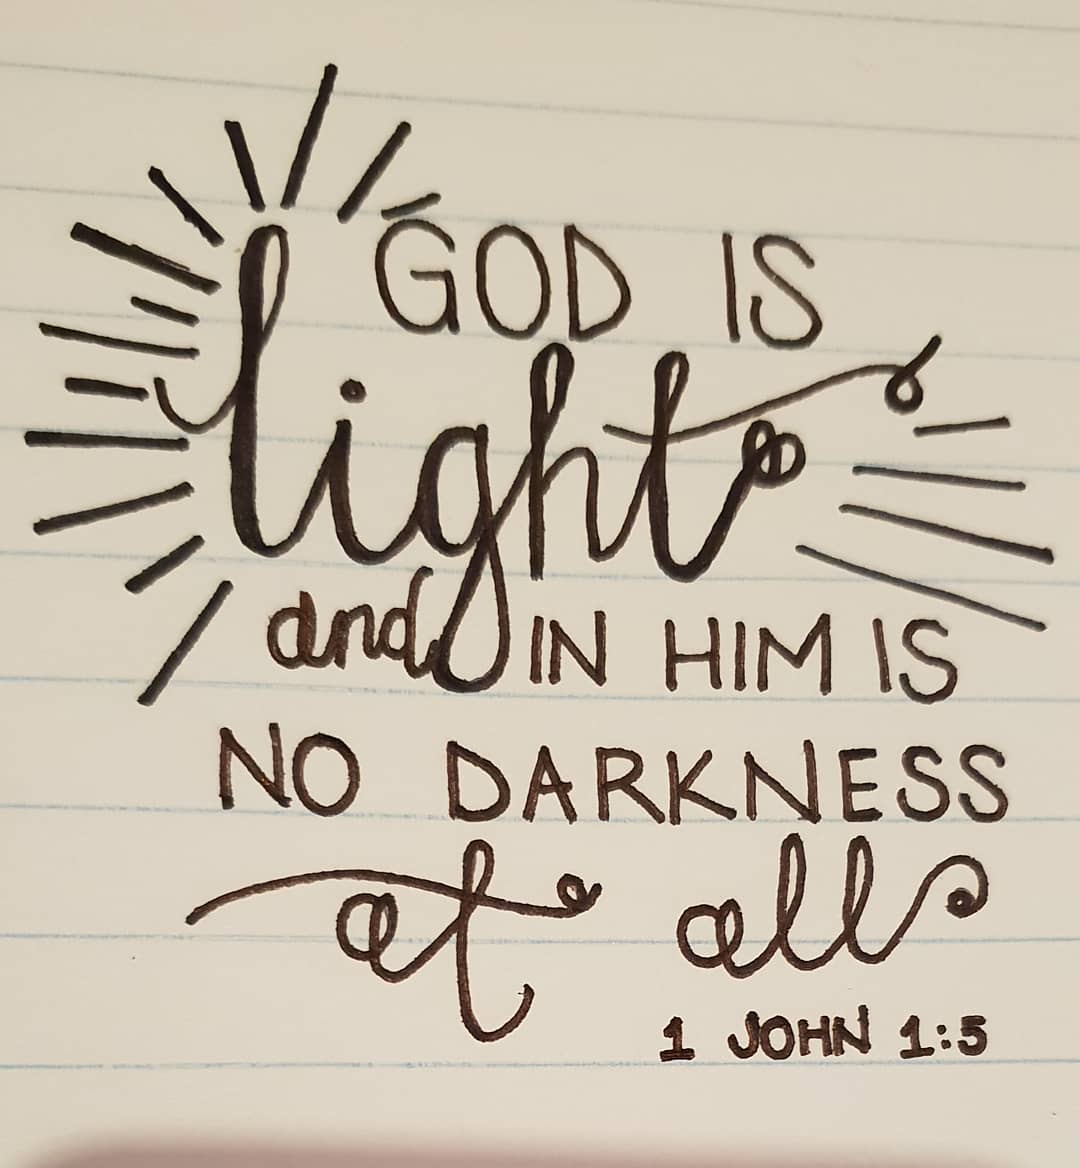 GOD IS
light
and IN HIM IS
NO DARKNESS
at all
1 JOHN 1:5